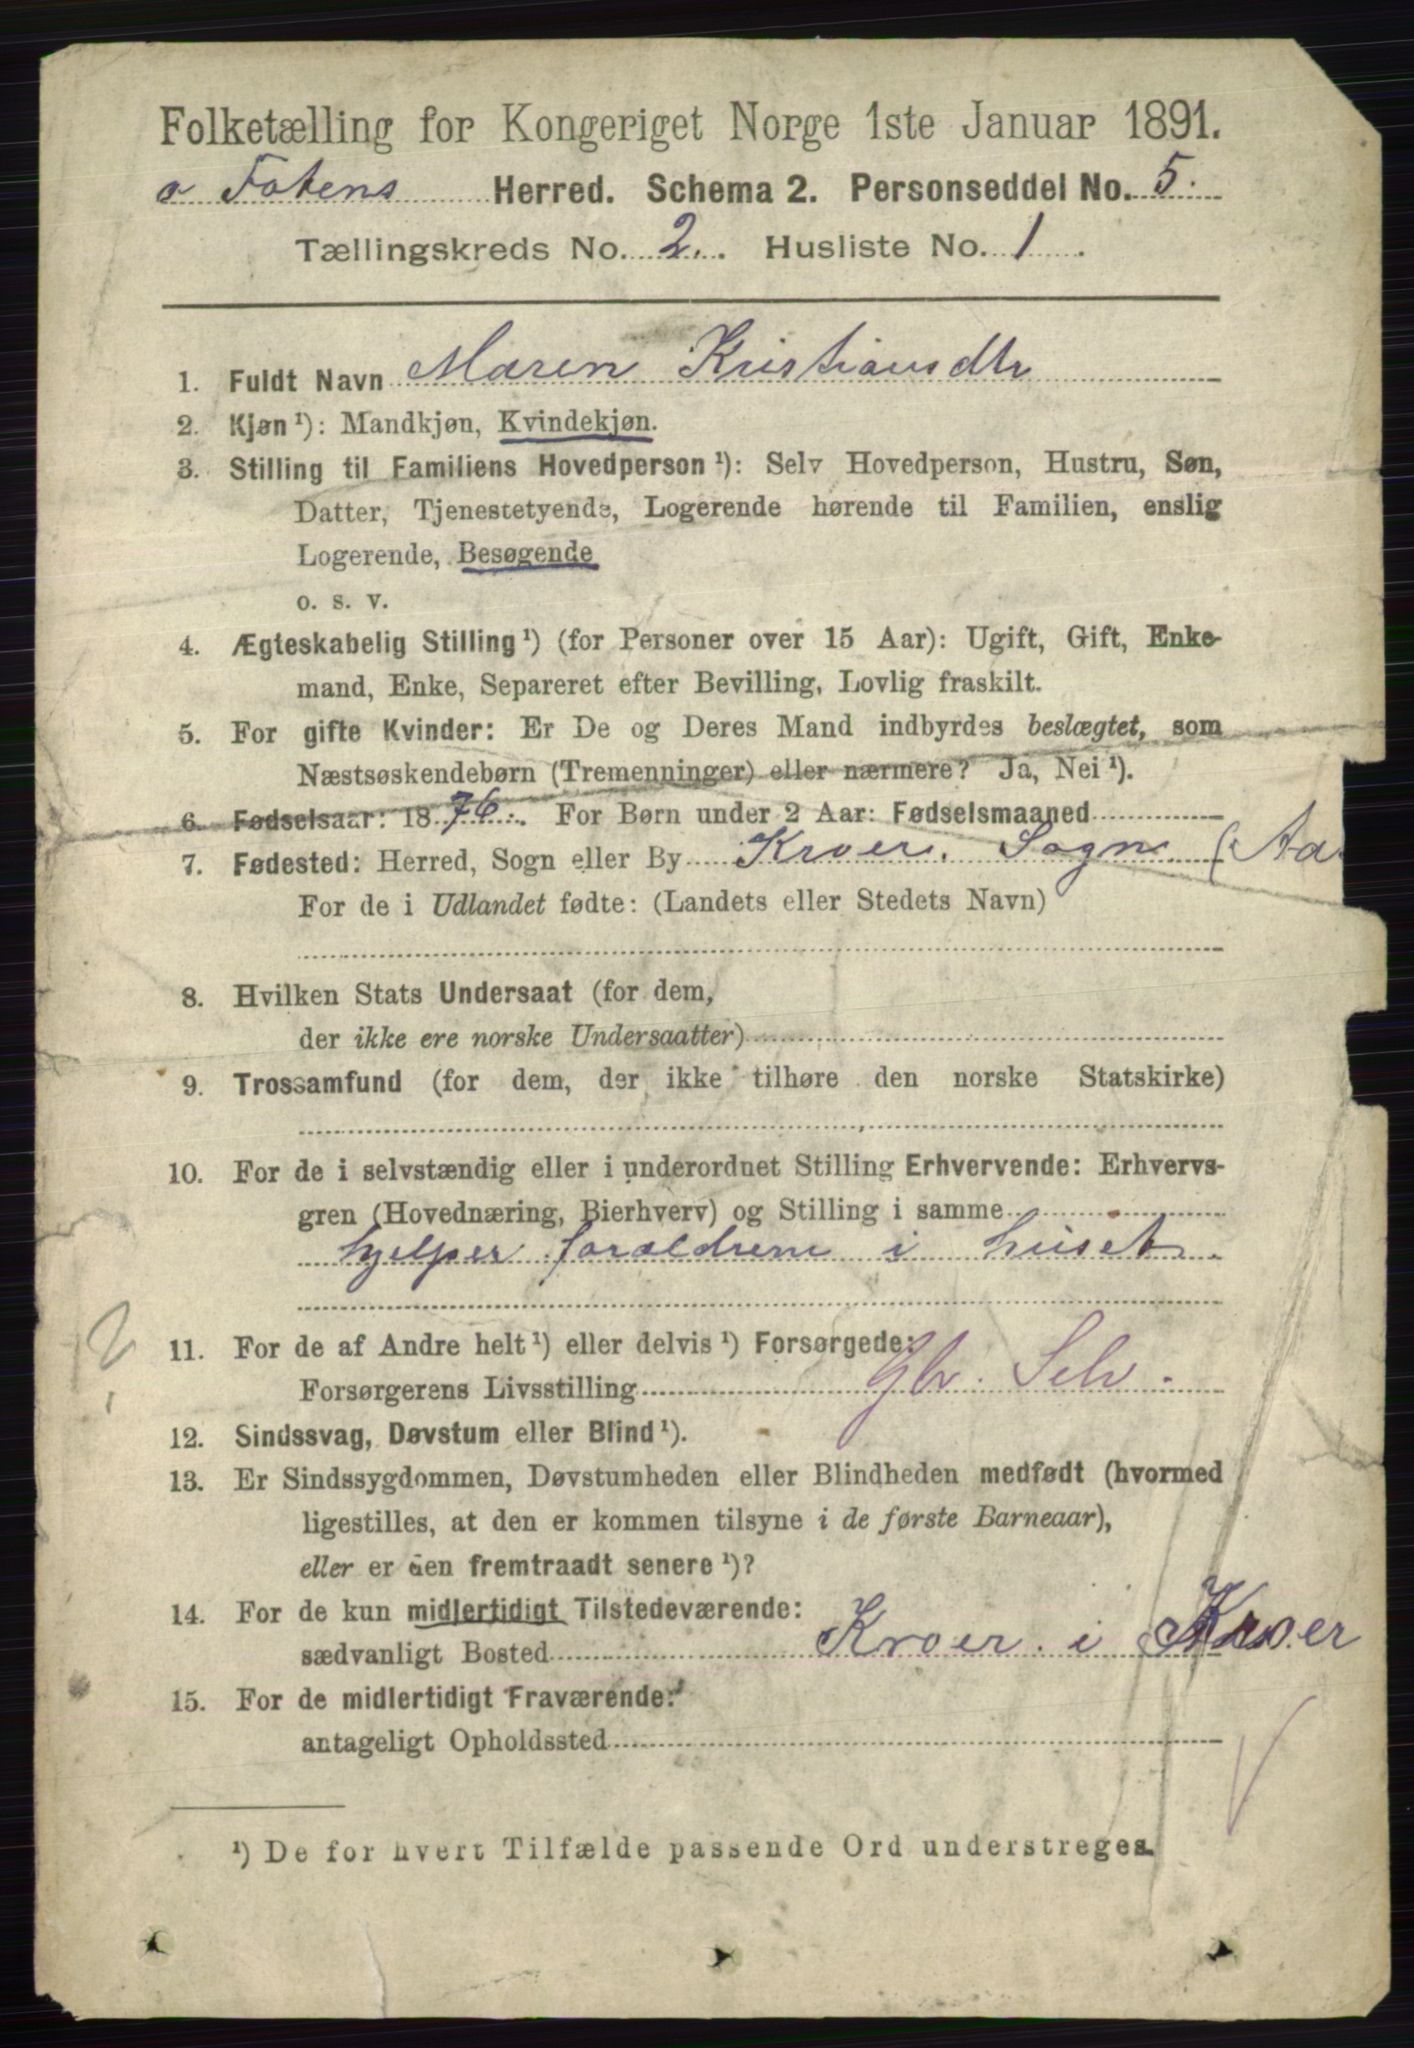 Folketælling for Kongeriget Norge 1ste Januar 1891.
Herred. Schema 2. Personseddel No. 5.
Tællingskreds No. 2. Husliste No. 1
1. Fuldt Navn Maren Kristiansdtr
2. Kjøn¹): Mandkjøn, Kvindekjøn.
3. Stilling til Familiens Hovedperson¹): Selv Hovedperson, Hustru, Søn,
Datter, Tjenestetyende, Logerende hørende til Familien, enslig
Logerende, Besøgende
o. s. v.
4. Ægteskabelig Stilling¹) (for Personer over 15 Aar): Ugift, Gift, Enke-
mand, Enke, Separeret efter Bevilling, Lovlig fraskilt.
5. For gifte Kvinder: Er De og Deres Mand indbyrdes beslægtet, som
Næstsøskendebørn (Tremenninger) eller nærmere? Ja, Nei¹).
6. Fødselsaar: 1876. For Børn under 2 Aar: Fødselsmaaned
7. Fødested: Herred, Sogn eller By Kroer. Sogn (Aa
For de i Udlandet fødte: (Landets eller Stedets Navn)
8. Hvilken Stats Undersaat (for dem,
der ikke ere norske Undersaatter)
9. Trossamfund (for dem, der ikke tilhøre den norske Statskirke)
10. For de i selvstændig eller i underordnet Stilling Erhvervende: Erhvervs-
gren (Hovednæring, Bierhverv) og Stilling i samme
hjelper foraldrene i huset.
11. For de af Andre helt¹) eller delvis¹) Forsørgede:
Forsørgerens Livsstilling Gbr. Selv.
12. Sindssvag, Døvstum eller Blind¹).
13. Er Sindssygdommen, Døvstumheden eller Blindheden medfødt (hvormed
ligestilles, at den er kommen tilsyne i de første Barneaar),
eller er den fremtraadt senere¹)?
14. For de kun midlertidigt Tilstedeværende:
sædvanligt Bosted Kroer i Kroer
15. For de midlertidigt Fraværende:
antageligt Opholdssted
¹) De for hvert Tilfælde passende Ord understreges.